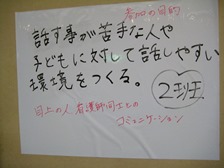 看加の目的
話す事が苦手な人や
子どもに対して話しやすい
環境をつくる。
2班
目上の人 看護師同士との
コミュニケーション